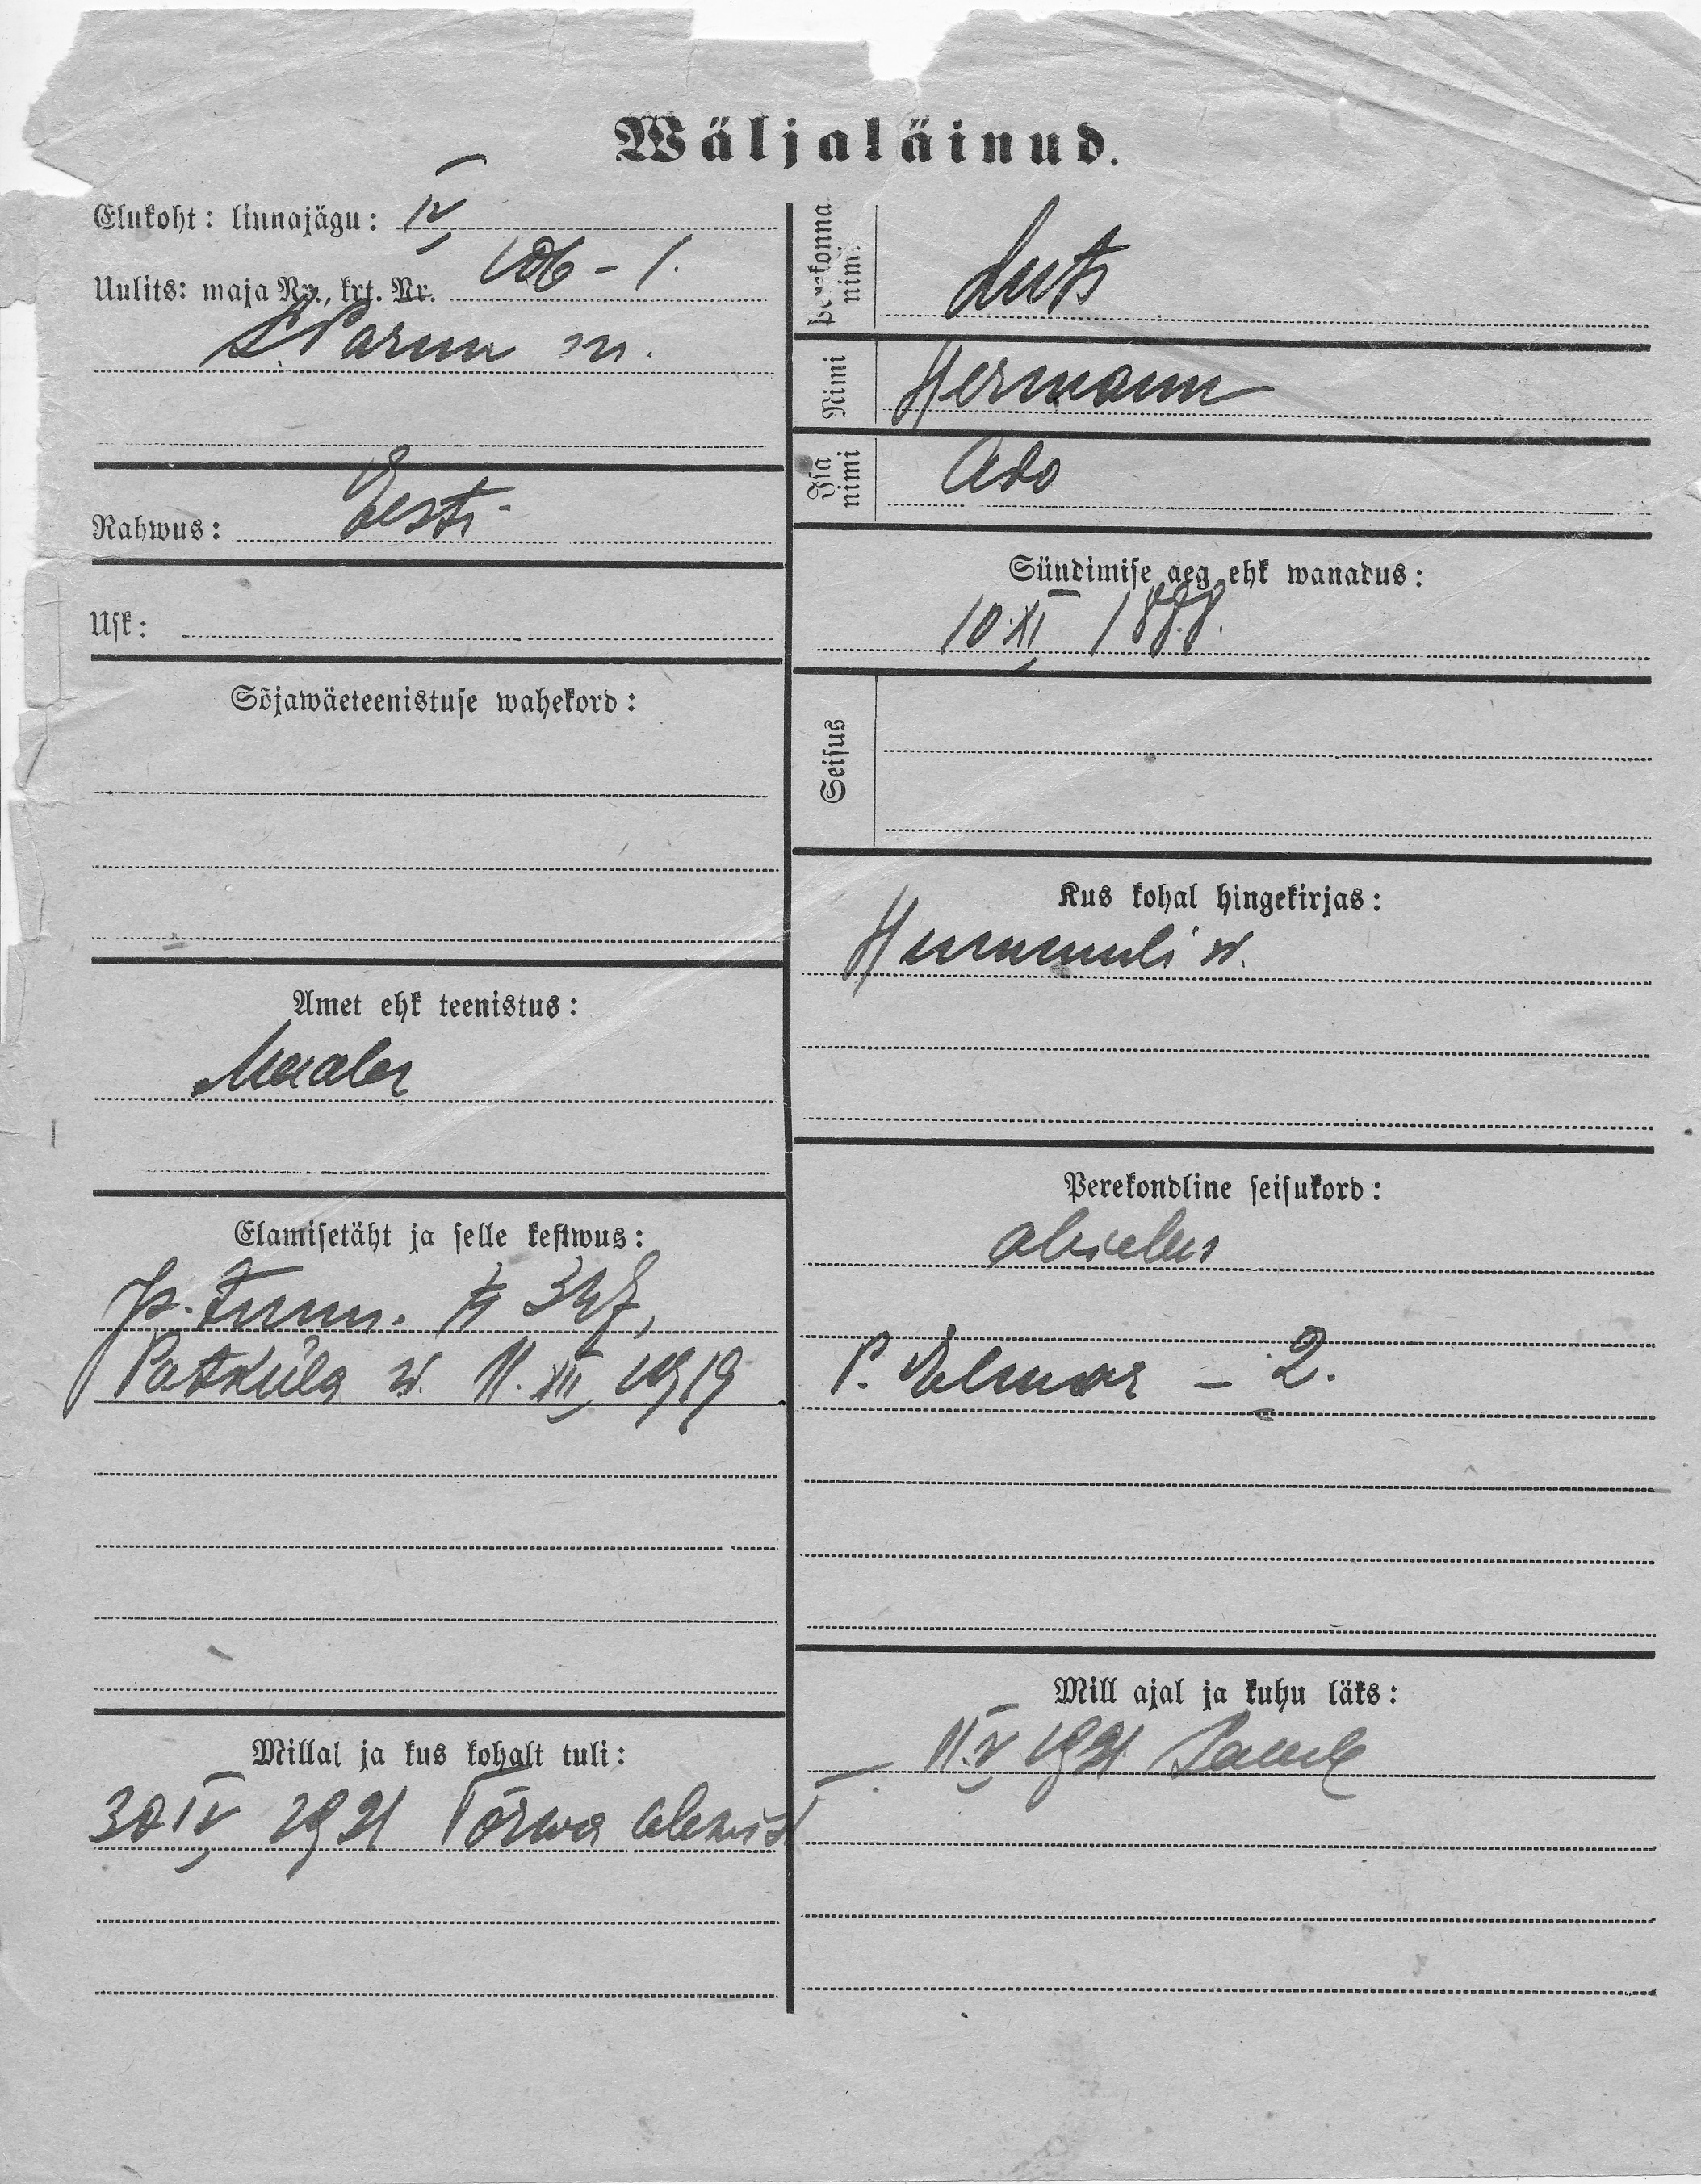 Wäljaläinud.
Elukoht: linnajägu: IV
Uulits: maja Nr., krt. Nr. 106 - 1.
S. Parnu m.
Rahwus: Eesti
Usk:
Sõjawäeteenistuse wahekord:
Amet ehk teenistus:
Maaler
Elamisetäht ja selle kestwus:
p. tunn. № 347,
Patküla w. 11. XII 1919
Millal ja kus kohalt tuli:
30 IV 1921 Tõrwa alewist
Perekonna nimi:
Luts
Nimi
Hermann
Isa nimi
Ado
Sündimise aeg ehk wanadus:
10. XI 1898.
Seisus
Kus kohal hingekirjas:
Hummuli w.
Perekondline seisukord:
abielus
P. Elmar - 2.
Mill ajal ja kuhu läks:
11. V 1921